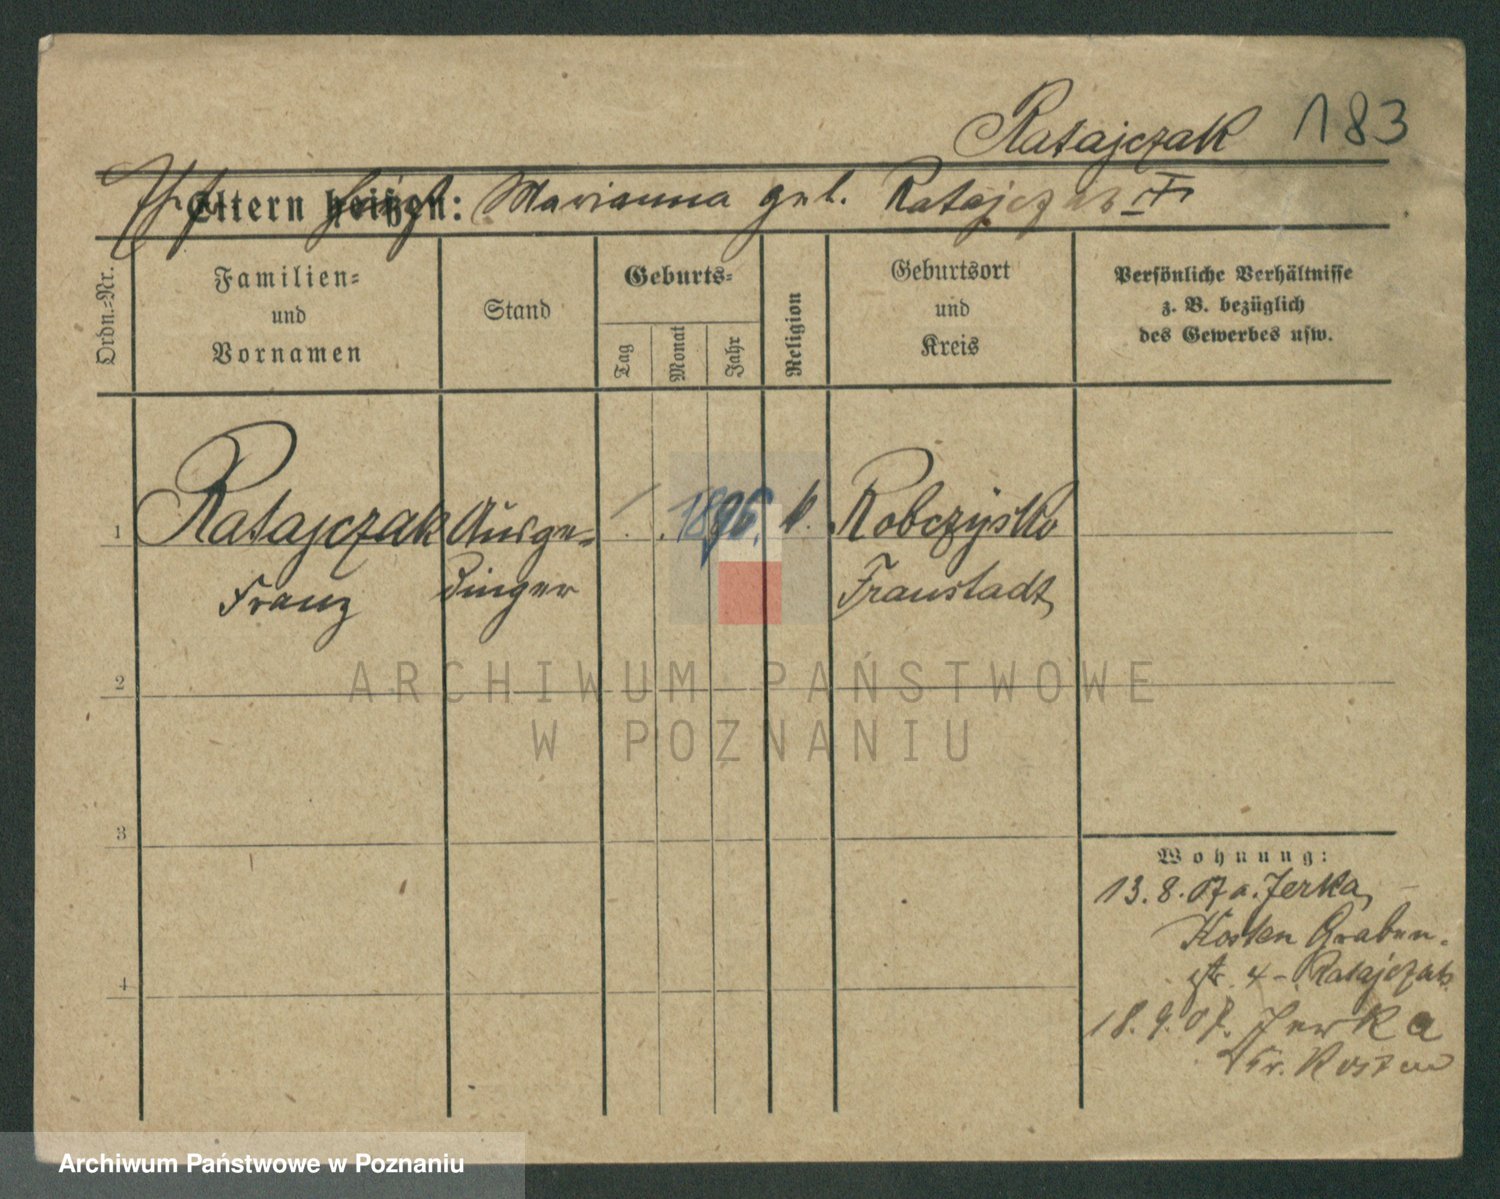 Ratajczak 183
Eltern heißen: Marianna geb. Ratajczak
Ordn.-Nr.
Familien-
und
Vornamen
Stand
Geburts-
Tag
Monat
Jahr
Religion
Geburtsort
und
Kreis
Persönliche Verhältnisse
z. B. bezüglich
des Gewerbes usw.
1 Ratajczak Ausge- k. Robczysko
Franz dinger Fraustadt
2
3
4
Wohnung:
13.8.07 a. Jerka,
Kosten Graben-
str. 4 - Ratajczak
18.9.07. Jerka
Kr. Kosten
ARCHIWUM PAŃSTWOWE
W POZNANIU
Archiwum Państwowe w Poznaniu